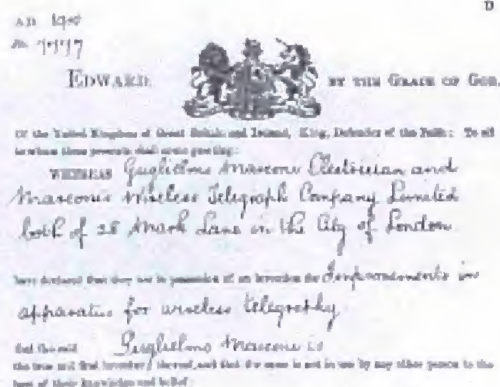 D
AD 1900
No. 7777
EDWARD BY THE GRACE OF GOD,
Of the United Kingdom of Great Britain and Ireland, King, Defender of the Faith: To all
to whom these presents shall come greeting:
WHEREAS Guglielmo Marconi Electrician and
Marconi's Wireless Telegraph Company Limited
both of 28 Mark Lane in the City of London
have declared that they are in possession of an invention for Improvements in
apparatus for wireless telegraphy
that the said Guglielmo Marconi is
the true and first inventor thereof, and that the same is not in use by any other person to the
best of their knowledge and belief: